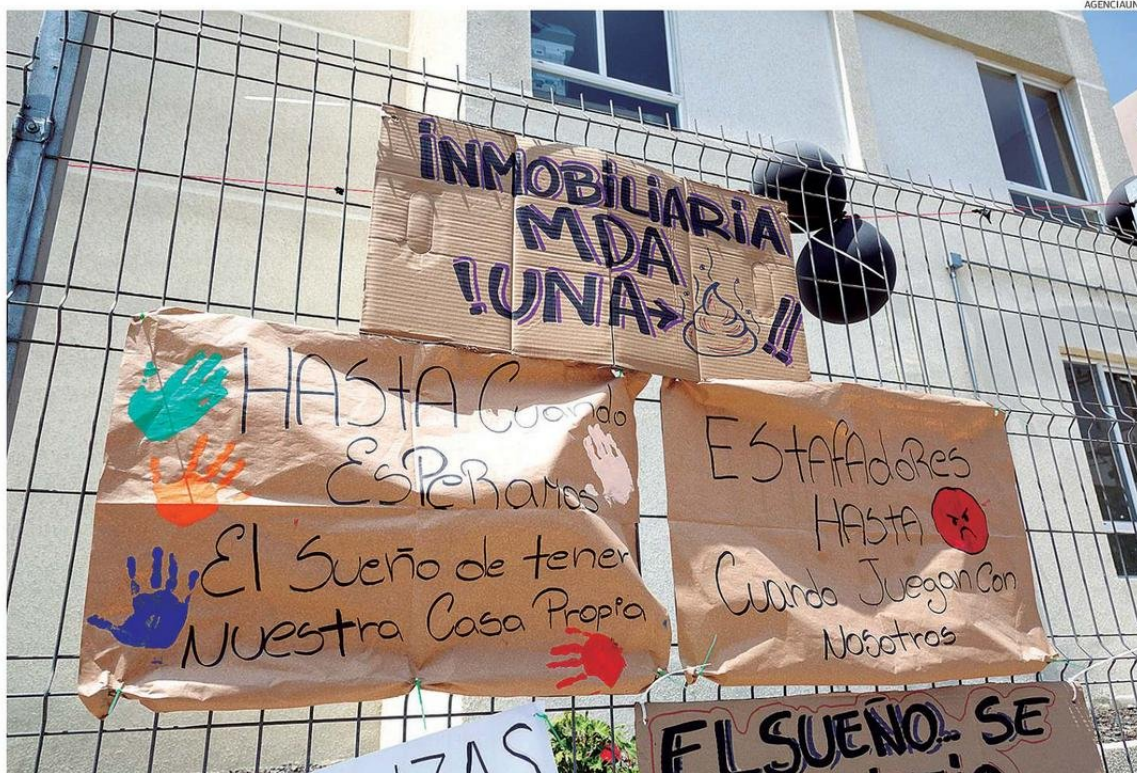 AGENCIAUN
INMOBILIARIA
MDA
!UNA→ !!
HASTA Cuando
EsPERamos
El Sueño de tener
Nuestra Casa Propia
EStAfAdoRes
HASTA
Cuando Juegan Con
Nosotros
ZAS
EL SUEÑO SE